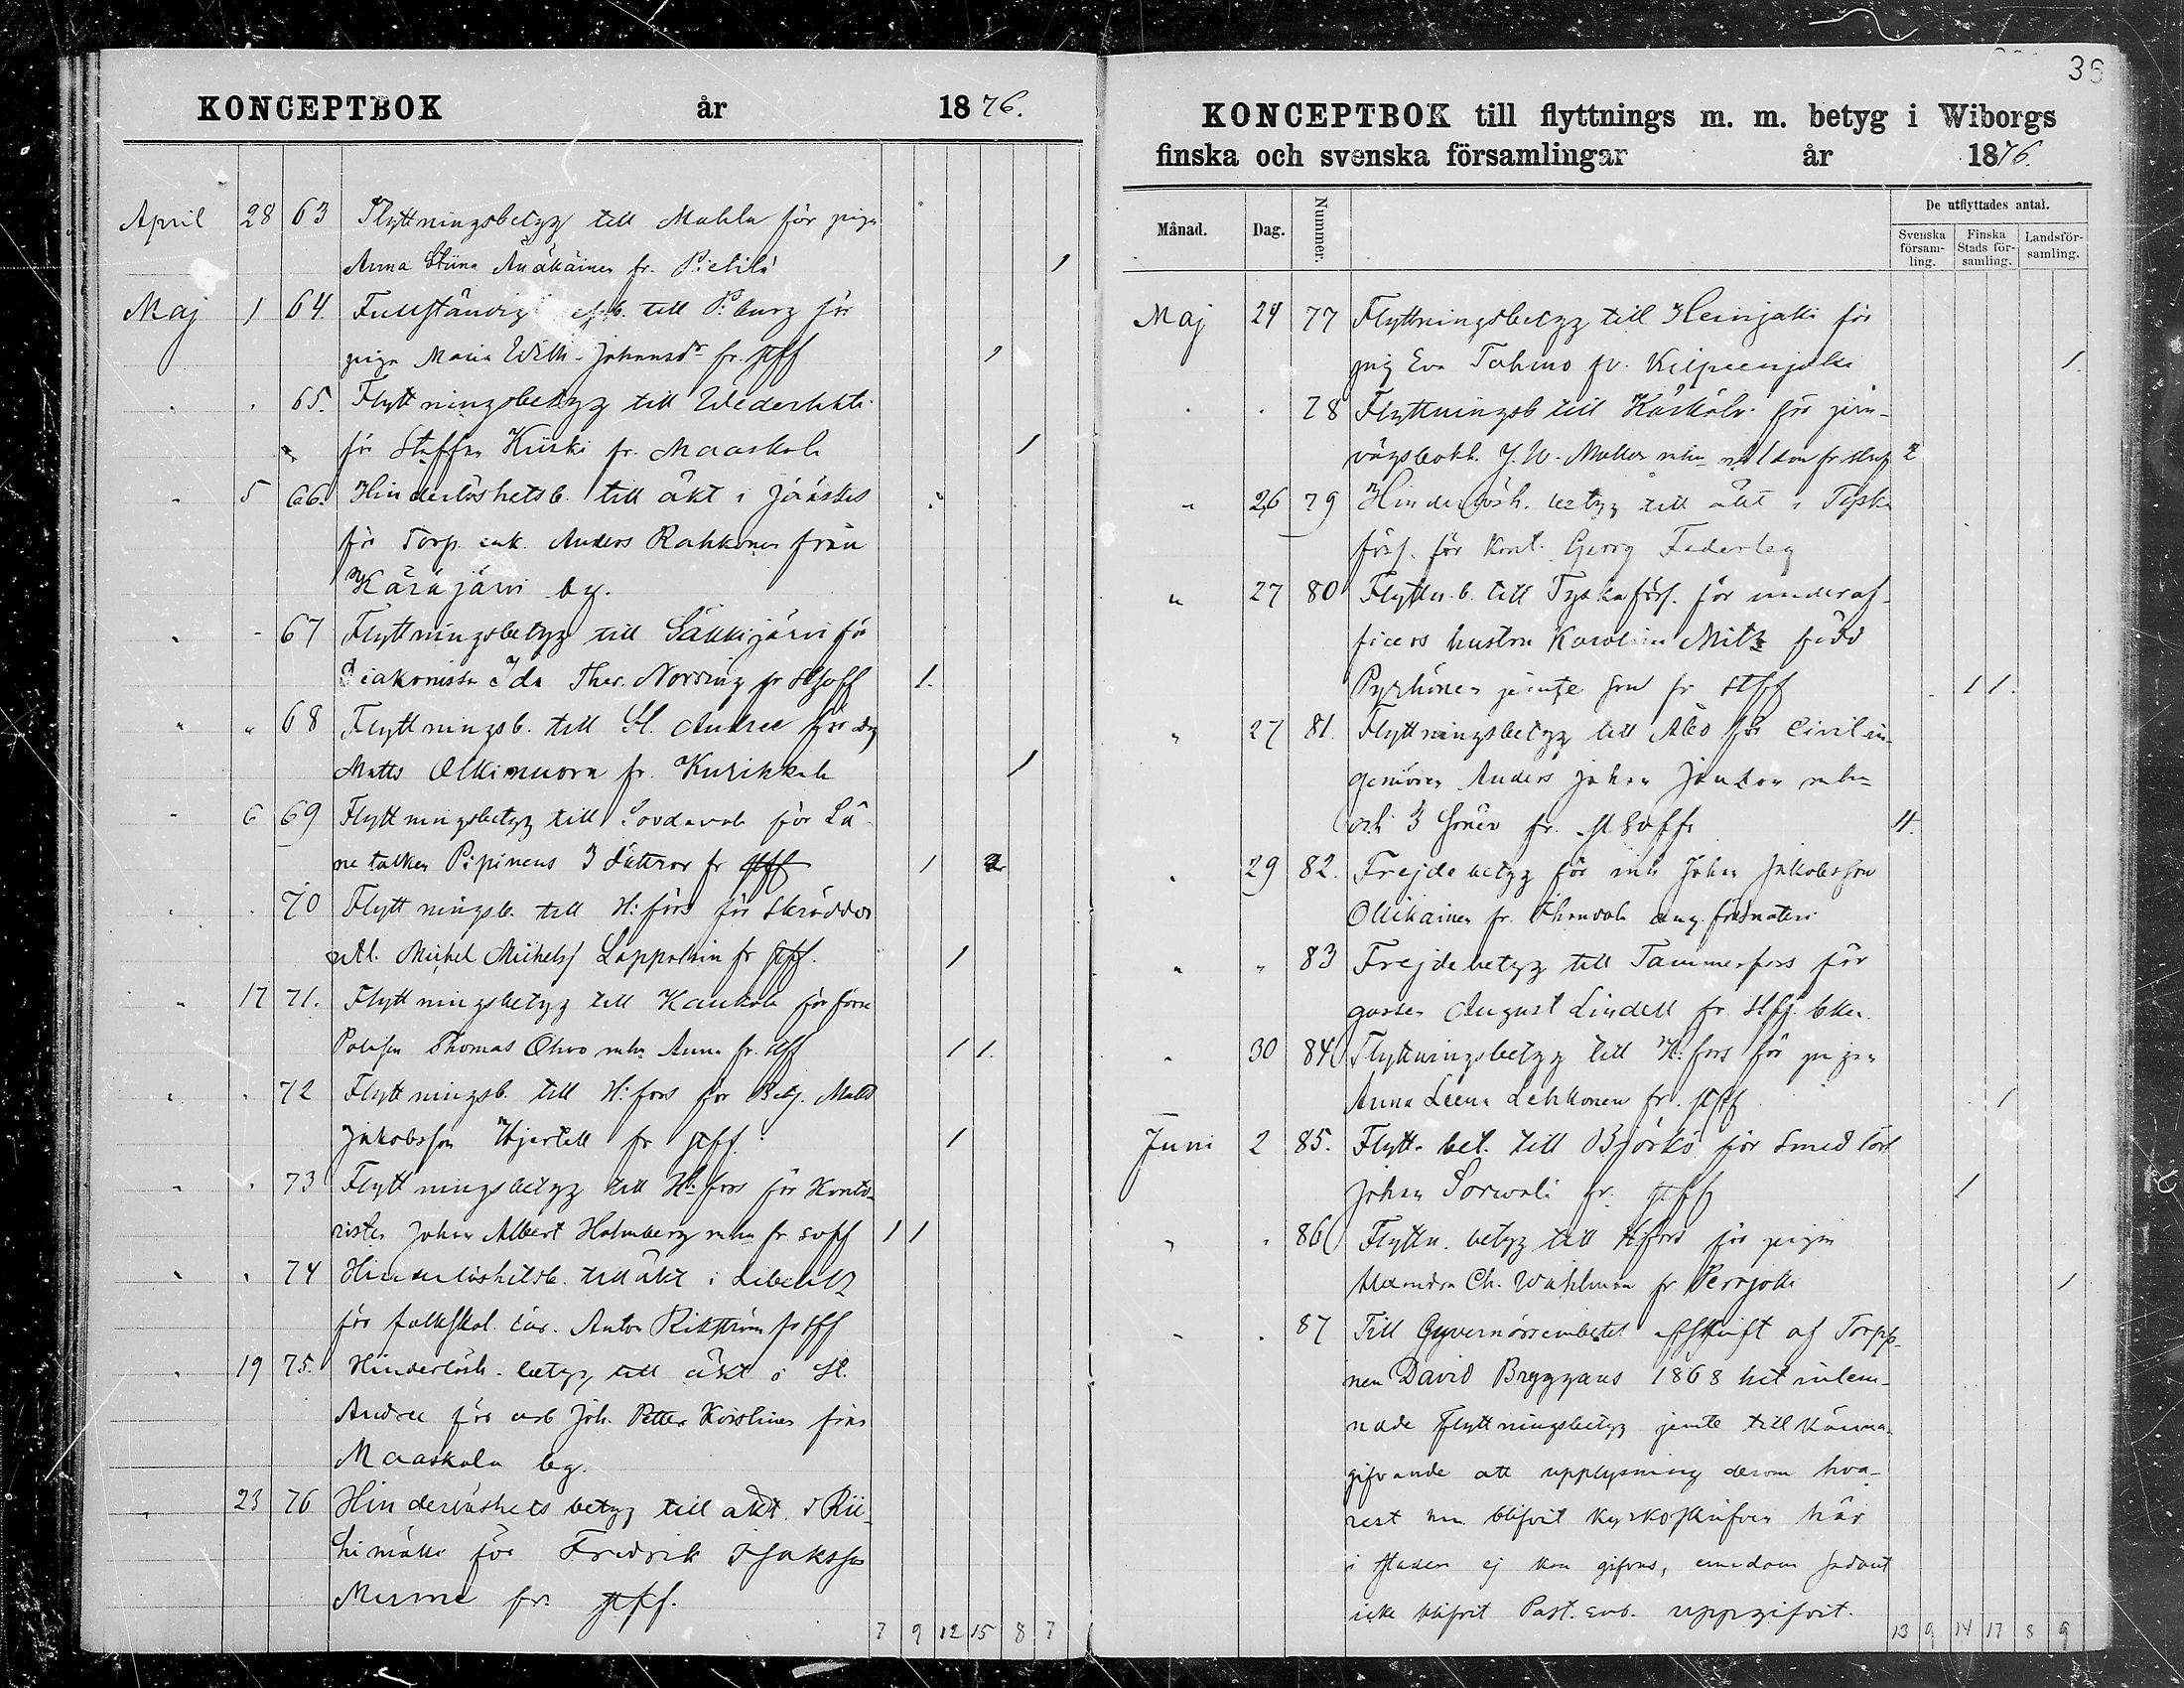 KONCEPTBOK år 1876.
April 28 63 Flyttningsbetyg till Mohla för pigan
Anna Stiina Änäkäinen fr. Pietilä 1
Maj 1 64. Fullständigt till P:burg för
pigan Maria Wilh. Johansdr fr. stff 1
65. Flyttningsbetyg till Wederlahti
för Staffan Kiiski fr. Maaskola 1
5 66. Hinderlöshetsb. till äkt i Jääskis
för Torp. enk. Anders Rahkonen från
Käräjärvi by.
67 Flyttningsbetyg till Säkkijärvi för
Diakonissa Ida Ther. Nording fr 1.
68 Flyttningsb. till St. Andree för
Matts Olkinuora fr. Kurikkala 1
6 69 Flyttningsbetyg till Sordavala för Lä-
netalken Pipinens 3 döttrar fr stff 1 2
70 Flyttningsb. till H:fors för Skräddar
Michel Michelss Lappalain fr stff. 1
17 71. Flyttningsbetyg till Kaukola för förre
Polisen Thomas Ohvo mhu Anna fr. stff 1 1.
72 Flyttningsb. till H:fors för Betj. Matts
Jakobsson Hjertell fr stff. 1
73 Flyttningsbetyg till H:fors för Konto-
risten Johan Albert Holmberg mhu fr soff 1 1
74 Hinderlöshetsb. till äkt i Libelitz
för folkskol. lär. Anton Rikström fr stff
19 75. Hinderlösh. betyg till äkt i St.
Andree för arb Joh. Petter Korslinen från
Maaskola by.
23 76 Hinderlöshets betyg till äkt. i Rii-
himäki för Fredrik Isaksson
Murme fr. stff.
7 9 12 15 8 7
36
KONCEPTBOK till flyttnings m. m. betyg i Wiborgs
finska och svenska församlingar år 1876.
Månad. Dag. Nummer. De utflyttades antal.
Svenska församling. Finska Stads församling. Landsförsamling.
Maj 24 77 Flyttningsbetyg till Heinjoki för
pig Eva Tahmo fr. Kilpeenjoki 1.
78 Flyttningsb till Kärkölä för jern-
vägsbokh. J. W. Moller mhu 2
26 79 Hinderlösh. betyg till äkt i Tyska
förs. för Kont. Georg Federley
27 80 Flyttn. b. till Tyska förs. för underof-
ficers hustru Karolina Mitz född
Pyrhönen jemte son fr stff 1 1.
27 81. Flyttningsbetyg till Åbo för Civilin-
geniören Anders Johan Janzon mhu
och 3 söner fr. st soff 4.
29 82. Frejdebetyg för Johan Jakobsson
Ollikainen fr.
83 Frejdebetyg till Tammerfors för
gossen August Lindell fr stff.
30 84 Flyttningsbetyg till H:fors för pigan
Anna Leena Lehkonen fr. stff 1
Juni 2 85. Flytt. bet. till Björkö för Smed
Johan Sorvali fr. stff 1
86 Flyttn. betyg till H:fors för pigan
Alexandra Ch. Wahlman fr Perojoki 1
87 Till Guvernörsembetet afskrift af Torpp.
nen David Bryggars 1868 hit inlem-
nade Flyttningsbetyg jemte tillkänna-
gifvande att upplysning derom hva-
rest blifvit kyrkoskrifven här
i staden ej kan gifvas, emedan sådant
icke blifvit Past. Emb. uppgifvit.
13 9 14 17 8 9